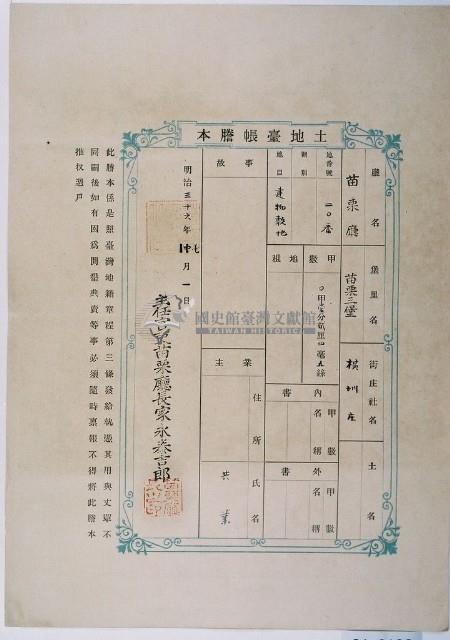 土地臺帳謄本
廳名
苗栗廳
堡里名
苗栗三堡
街庄社名
土名
地番號
二〇番
則別
地目
建物敷地
甲數
地租
內書
甲數
名稱
外書
甲數
名稱
事故
業主
住所
氏名
共業
明治三十六年
月一日
苗栗廳長家永泰吉郎
此謄本係是照臺灣地籍章程第三條發給就憑其用與丈單不
同嗣後如有因爲開墾典賣等事必須隨時稟報不得將此謄本
推杈過戶
國史館臺灣文獻館
TAIWAN HISTORICA